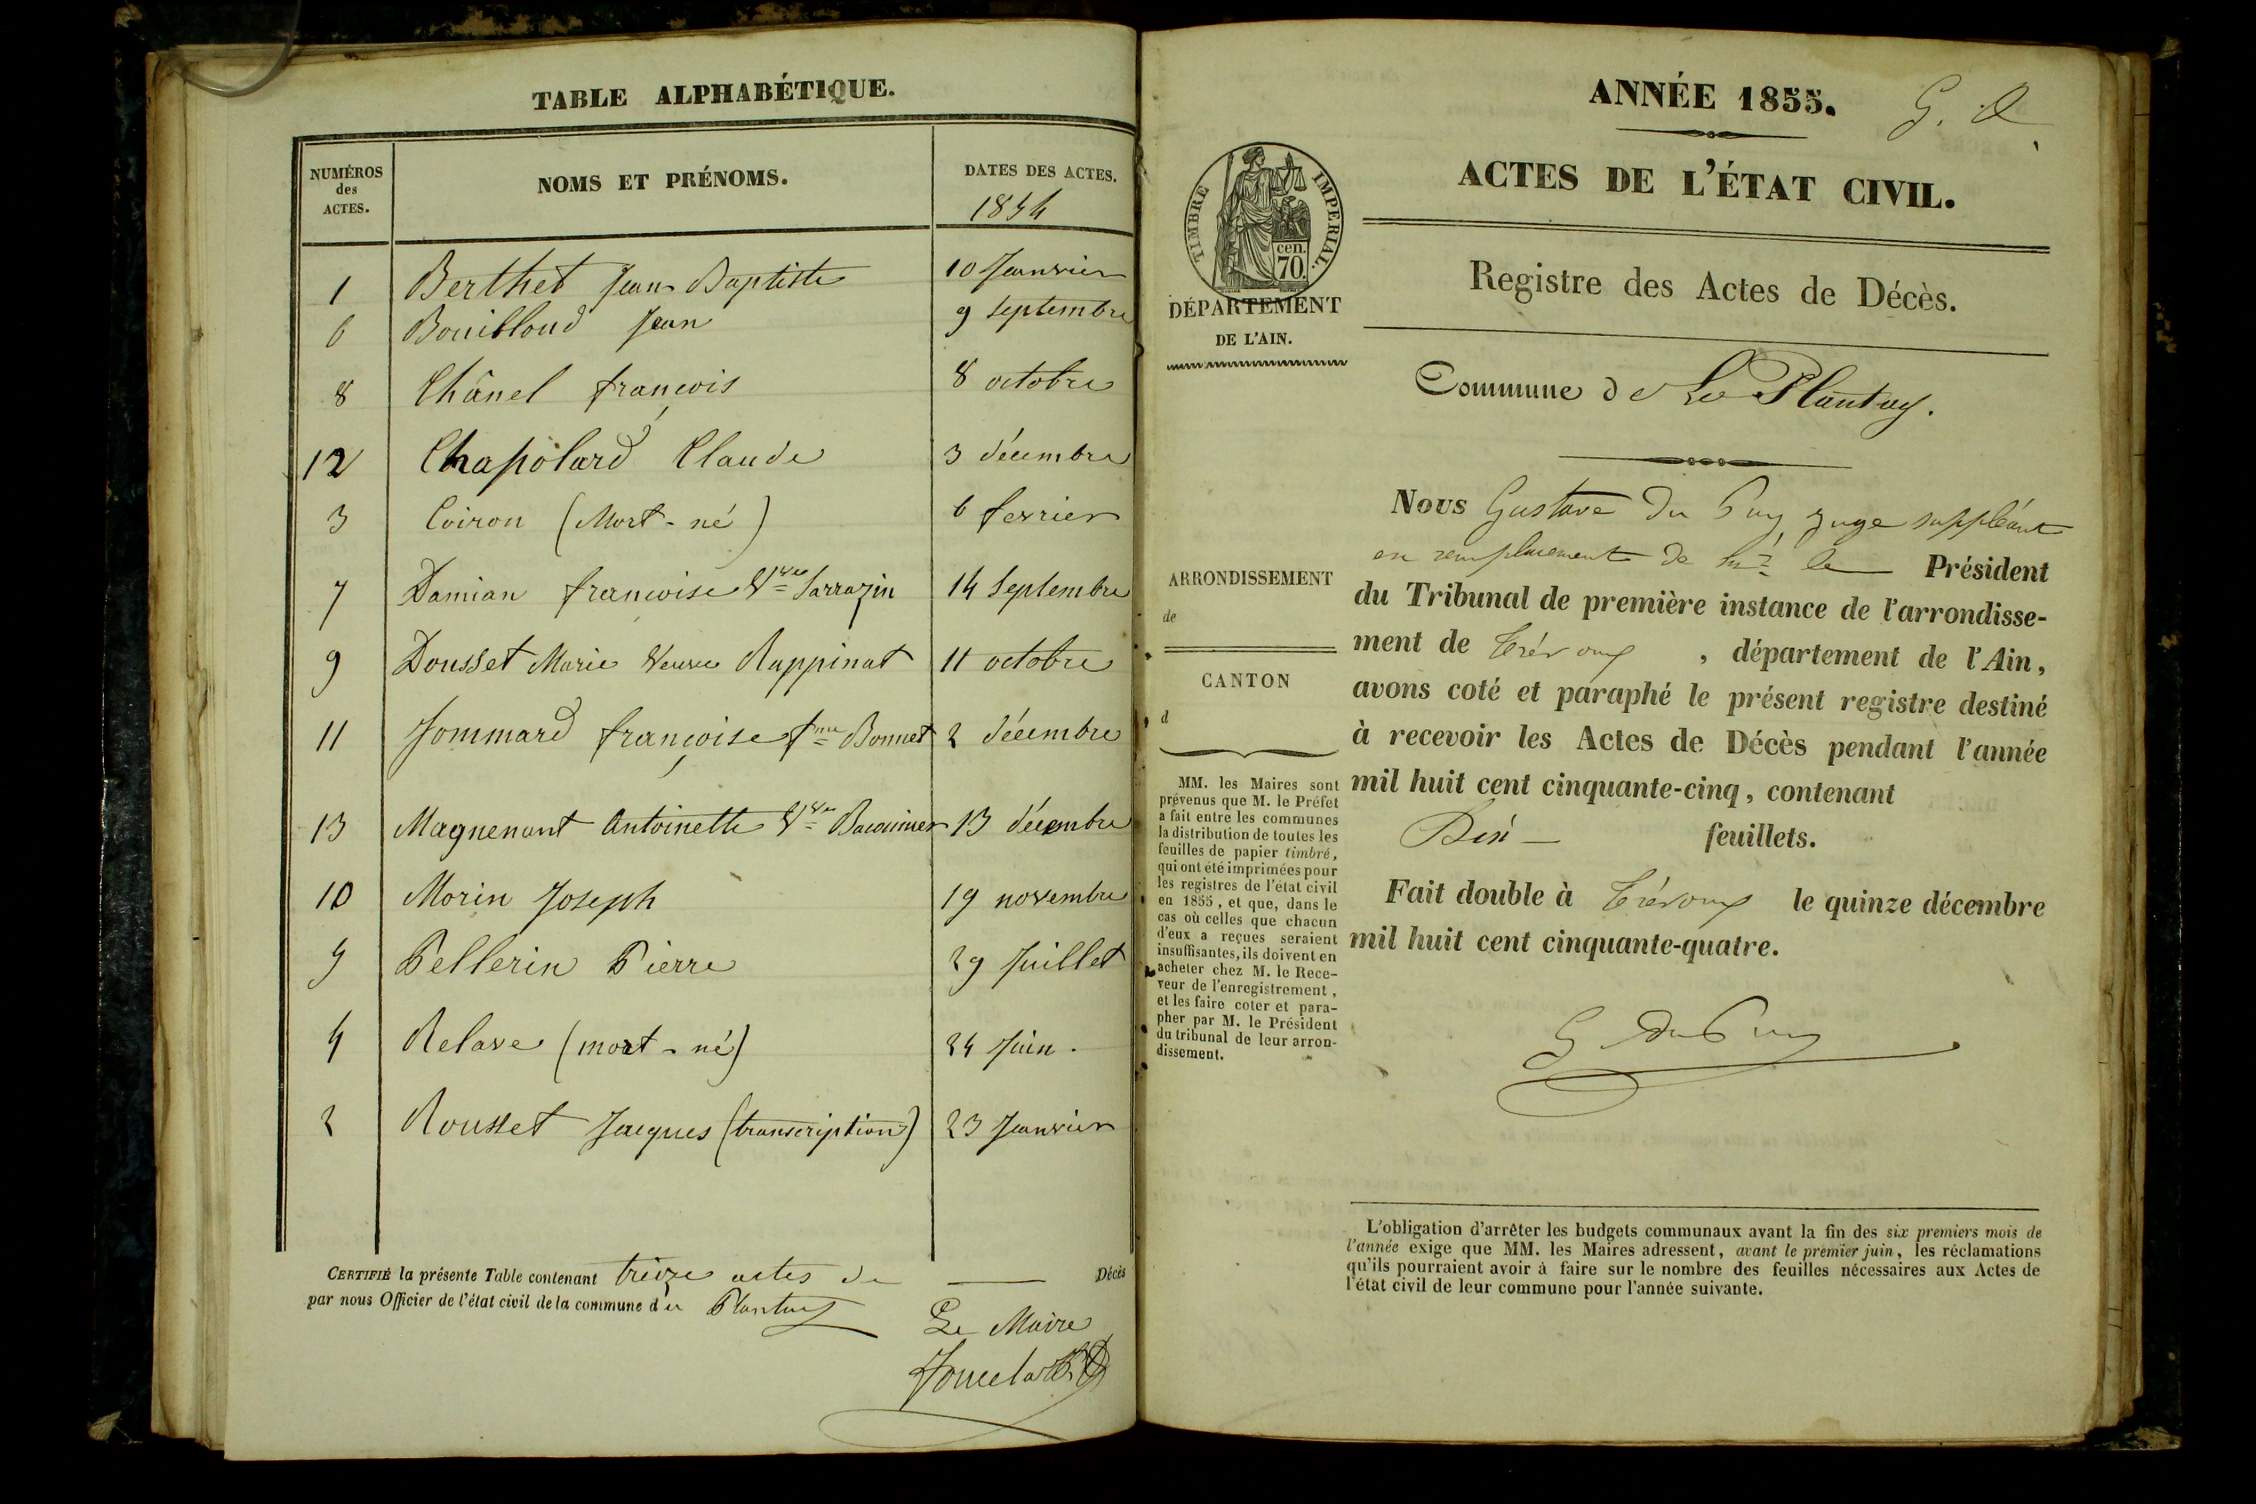 TABLE ALPHABÉTIQUE.
NUMÉROS des ACTES.
NOMS ET PRÉNOMS.
DATES DES ACTES.
1854
1 Berthet Jean Baptiste 10 Janvier
6 Bouilloud Jean 9 Septembre
8 Chânel françois 8 octobre
12 Chapolard Claude 3 décembre
3 Coiron (Mort-né) 6 fevrier
7 Damian francoise Vve Sarrazin 14 Septembre
9 Dousset Marie Veuve Rappinat 11 octobre
11 Jommard françoise fme Bonnet 2 décembre
13 Magnenant Antoinette Vve 13 décembre
10 Morin Joseph 19 novembre
5 Pellerin Pierre 29 Juillet
4 Relave (mort-né) 24 Juin.
2 Rousset Jacques (transcription) 23 Janvier
CERTIFIÉ la présente Table contenant treize actes de Décès
par nous Officier de l'état civil de la commune du Plantay
Le Maire
ANNÉE 1855.
G. D
ACTES DE L'ÉTAT CIVIL.
TIMBRE IMPERIAL.
cen.
70.
DÉPARTEMENT
DE L'AIN.
Registre des Actes de Décès.
Commune de Le Plantay.
Nous Gustave Du Puy juge suppléant
en remplacement de Mr le Président
du Tribunal de première instance de l'arrondisse-
ment de Trévoux, département de l'Ain,
avons coté et paraphé le présent registre destiné
à recevoir les Actes de Décès pendant l'année
mil huit cent cinquante-cinq, contenant
feuillets.
Fait double à Trévoux le quinze décembre
mil huit cent cinquante-quatre.
G DuPuy
ARRONDISSEMENT
de
CANTON
d
MM. les Maires sont
prévenus que M. le Préfet
a fait entre les communes
la distribution de toutes les
feuilles de papier timbré,
qui ont été imprimées pour
les registres de l'état civil
en 1855, et que, dans le
cas où celles que chacun
d'eux a reçues seraient
insuffisantes, ils doivent en
acheter chez M. le Rece-
veur de l'enregistrement,
et les faire coter et para-
pher par M. le Président
du tribunal de leur arron-
dissement.
L'obligation d'arrêter les budgets communaux avant la fin des six premiers mois de
l'année exige que MM. les Maires adressent, avant le premier juin, les réclamations
qu'ils pourraient avoir à faire sur le nombre des feuilles nécessaires aux Actes de
l'état civil de leur commune pour l'année suivante.